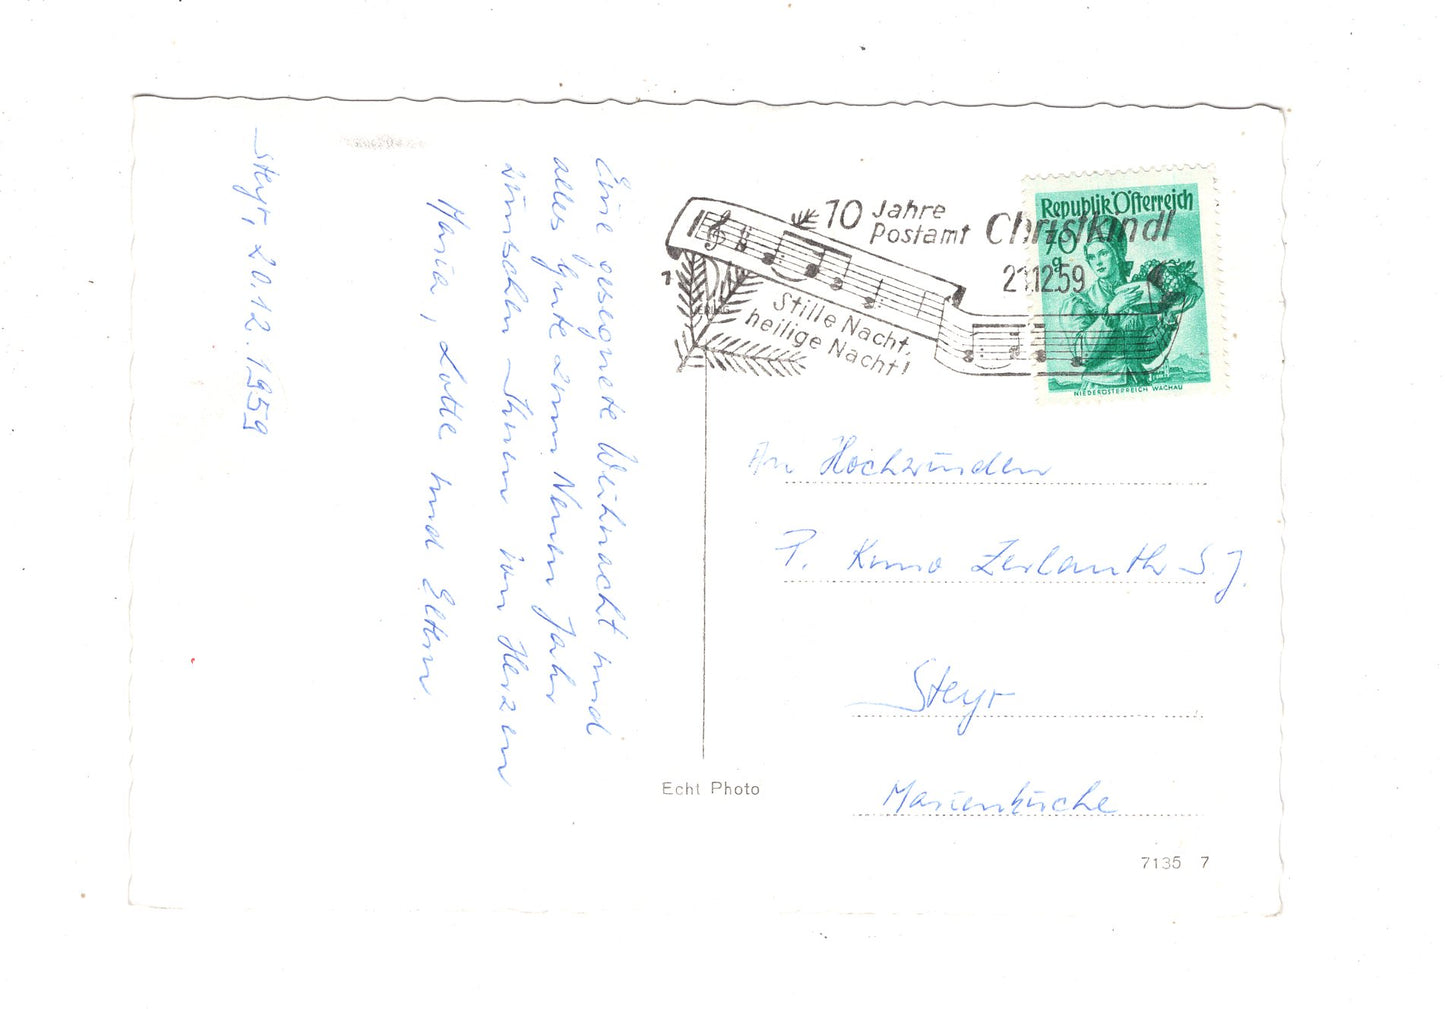 Steyr, 20.12.1959
Eine gesegnete Weihnacht und
alles Gute zum Neuen Jahr
wünschen Ihnen von Herzen
Maria, Lotte und Eltern.
10 Jahre
Postamt Christkindl
21.12.59
Stille Nacht,
heilige Nacht!
Republik Österreich
70 g
NIEDERÖSTERREICH WACHAU
An Hochwürden
P. Kuno Zerlauth S.J.
Steyr
Marienkirche
Echt Photo
7135 7